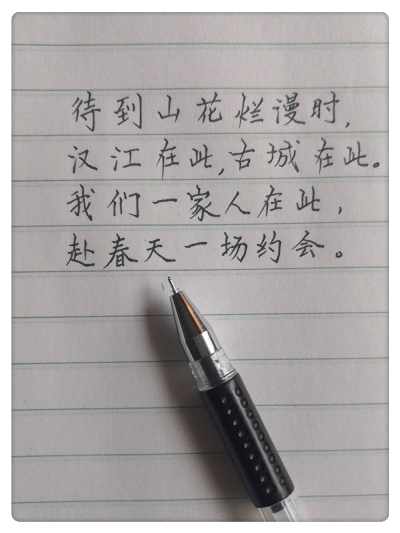 待到山花烂漫时,
汉江在此,古城在此。
我们一家人在此,
赴春天一场约会。